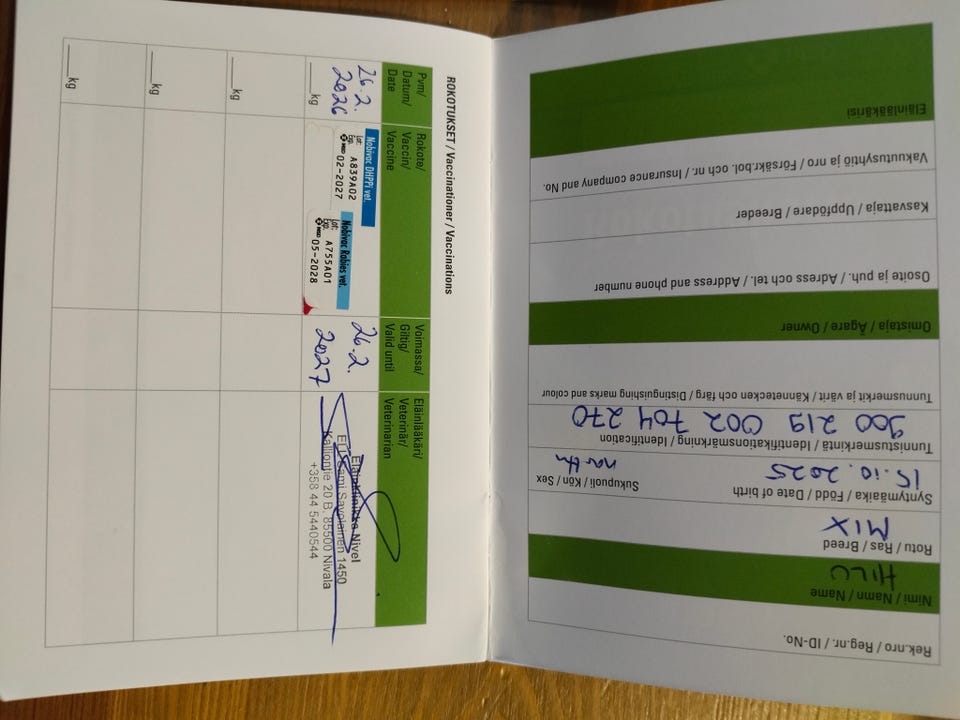 ROKOTUKSET / Vaccinationer / Vaccinations
Pvm/ Datum/ Date
Rokote/ Vaccin/ Vaccine
Voimassa/ Giltig/ Valid until
Eläinlääkäri/ Veterinär/ Veterinarian
26.2.
2026
____kg
Nobivac DHPPi vet.
Lot: A839A02
Exp. 02-2027
MSD
Nobivac Rabies vet.
Lot: A755A01
Exp. 05-2028
MSD
26.2.
2027
Eläinklinikka Nivel
ELL Sami Savolainen 1450
Kalliontie 20 B, 85500 Nivala
+358 44 5440544
____kg
____kg
____kg
Rek.nro / Reg.nr. / ID-No.
Nimi / Namn / Name
HILU
Rotu / Ras / Breed
MIX
Syntymäaika / Född / Date of birth
15.10.2025
Sukupuoli / Kön / Sex
narttu
Tunnistusmerkintä / Identifikationsmärkning / Identification
900 219 002 704 270
Tunnusmerkit ja värit / Kännetecken och färg / Distinguishing marks and colour
Omistaja / Ägare / Owner
Osoite ja puh. / Adress och tel. / Address and phone number
Kasvattaja / Uppfödare / Breeder
Vakuutusyhtiö ja nro / Försäkr.bol. och nr. / Insurance company and No.
Eläinlääkärisi